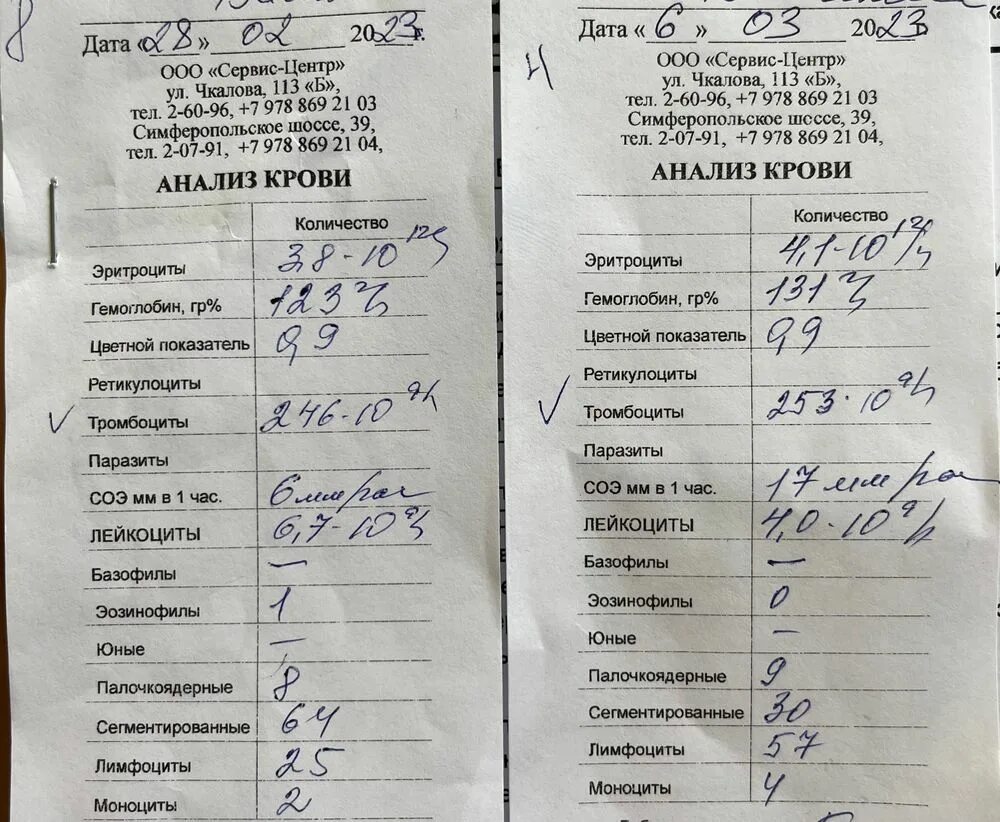 Дата «28» 02 2023г.
ООО «Сервис-Центр»
ул. Чкалова, 113 «Б»,
тел. 2-60-96, +7 978 869 21 03
Симферопольское шоссе, 39,
тел. 2-07-91, +7 978 869 21 04,
АНАЛИЗ КРОВИ
Количество
Эритроциты 3,8·10 12/л
Гемоглобин, гр% 123 г/л
Цветной показатель 0,9
Ретикулоциты
Тромбоциты 246·10 9/л
Паразиты
СОЭ мм в 1 час. 6 мм/час
ЛЕЙКОЦИТЫ 6,7·10 9/л
Базофилы —
Эозинофилы 1
Юные —
Палочкоядерные 8
Сегментированные 64
Лимфоциты 25
Моноциты 2
Дата «6» 03 2023
ООО «Сервис-Центр»
ул. Чкалова, 113 «Б»,
тел. 2-60-96, +7 978 869 21 03
Симферопольское шоссе, 39,
тел. 2-07-91, +7 978 869 21 04,
АНАЛИЗ КРОВИ
Количество
Эритроциты 4,1·10 12/л
Гемоглобин, гр% 131 г/л
Цветной показатель 0,9
Ретикулоциты
Тромбоциты 253·10 9/л
Паразиты
СОЭ мм в 1 час. 17 мм/час
ЛЕЙКОЦИТЫ 4,0·10 9/л
Базофилы —
Эозинофилы 0
Юные —
Палочкоядерные 9
Сегментированные 30
Лимфоциты 57
Моноциты 4